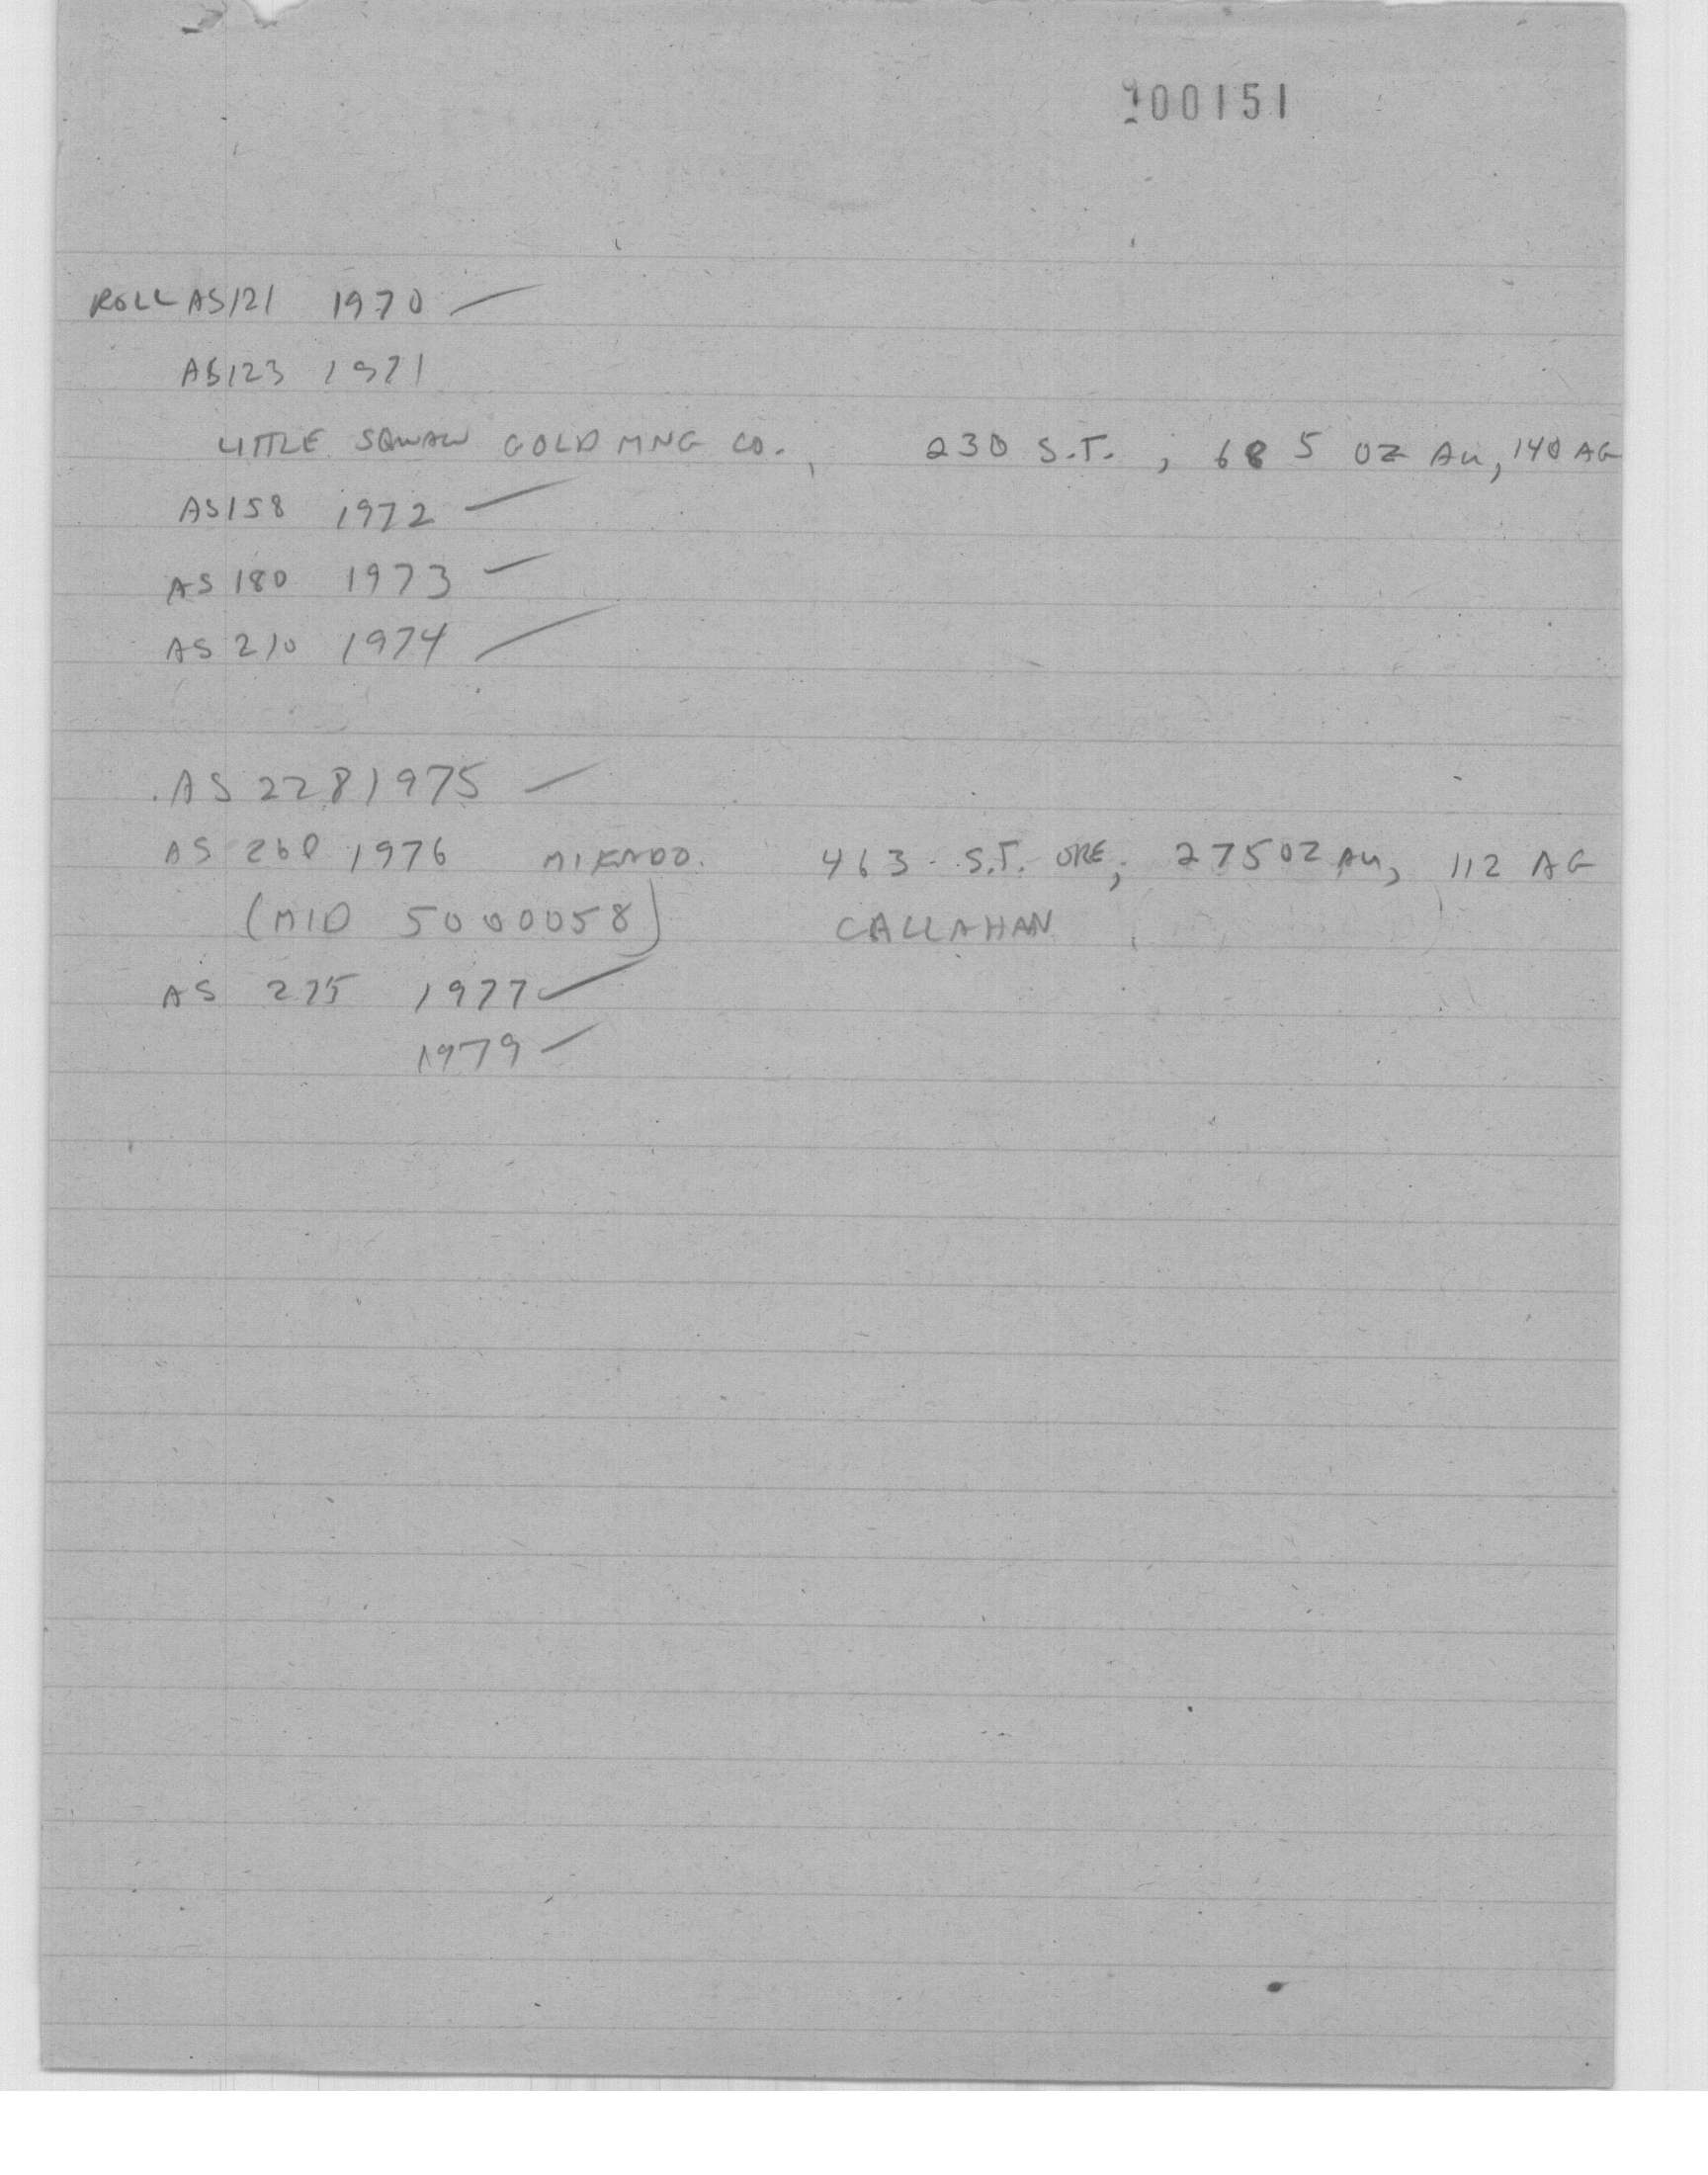 100151
ROLL AS121 1970 —
AS123 1971
LITTLE SQUAW GOLD MNG CO., 230 S.T. ; 685 OZ Au, 140 AG
AS158 1972 —
AS 180 1973 —
AS 210 1974 —
AS 228 1975 —
AS 260 1976 MIKADO. 463 S.T. ORE; 275 OZ Au, 112 AG
(MID 5000058) CALLAHAN
AS 275 1977 —
1979 —